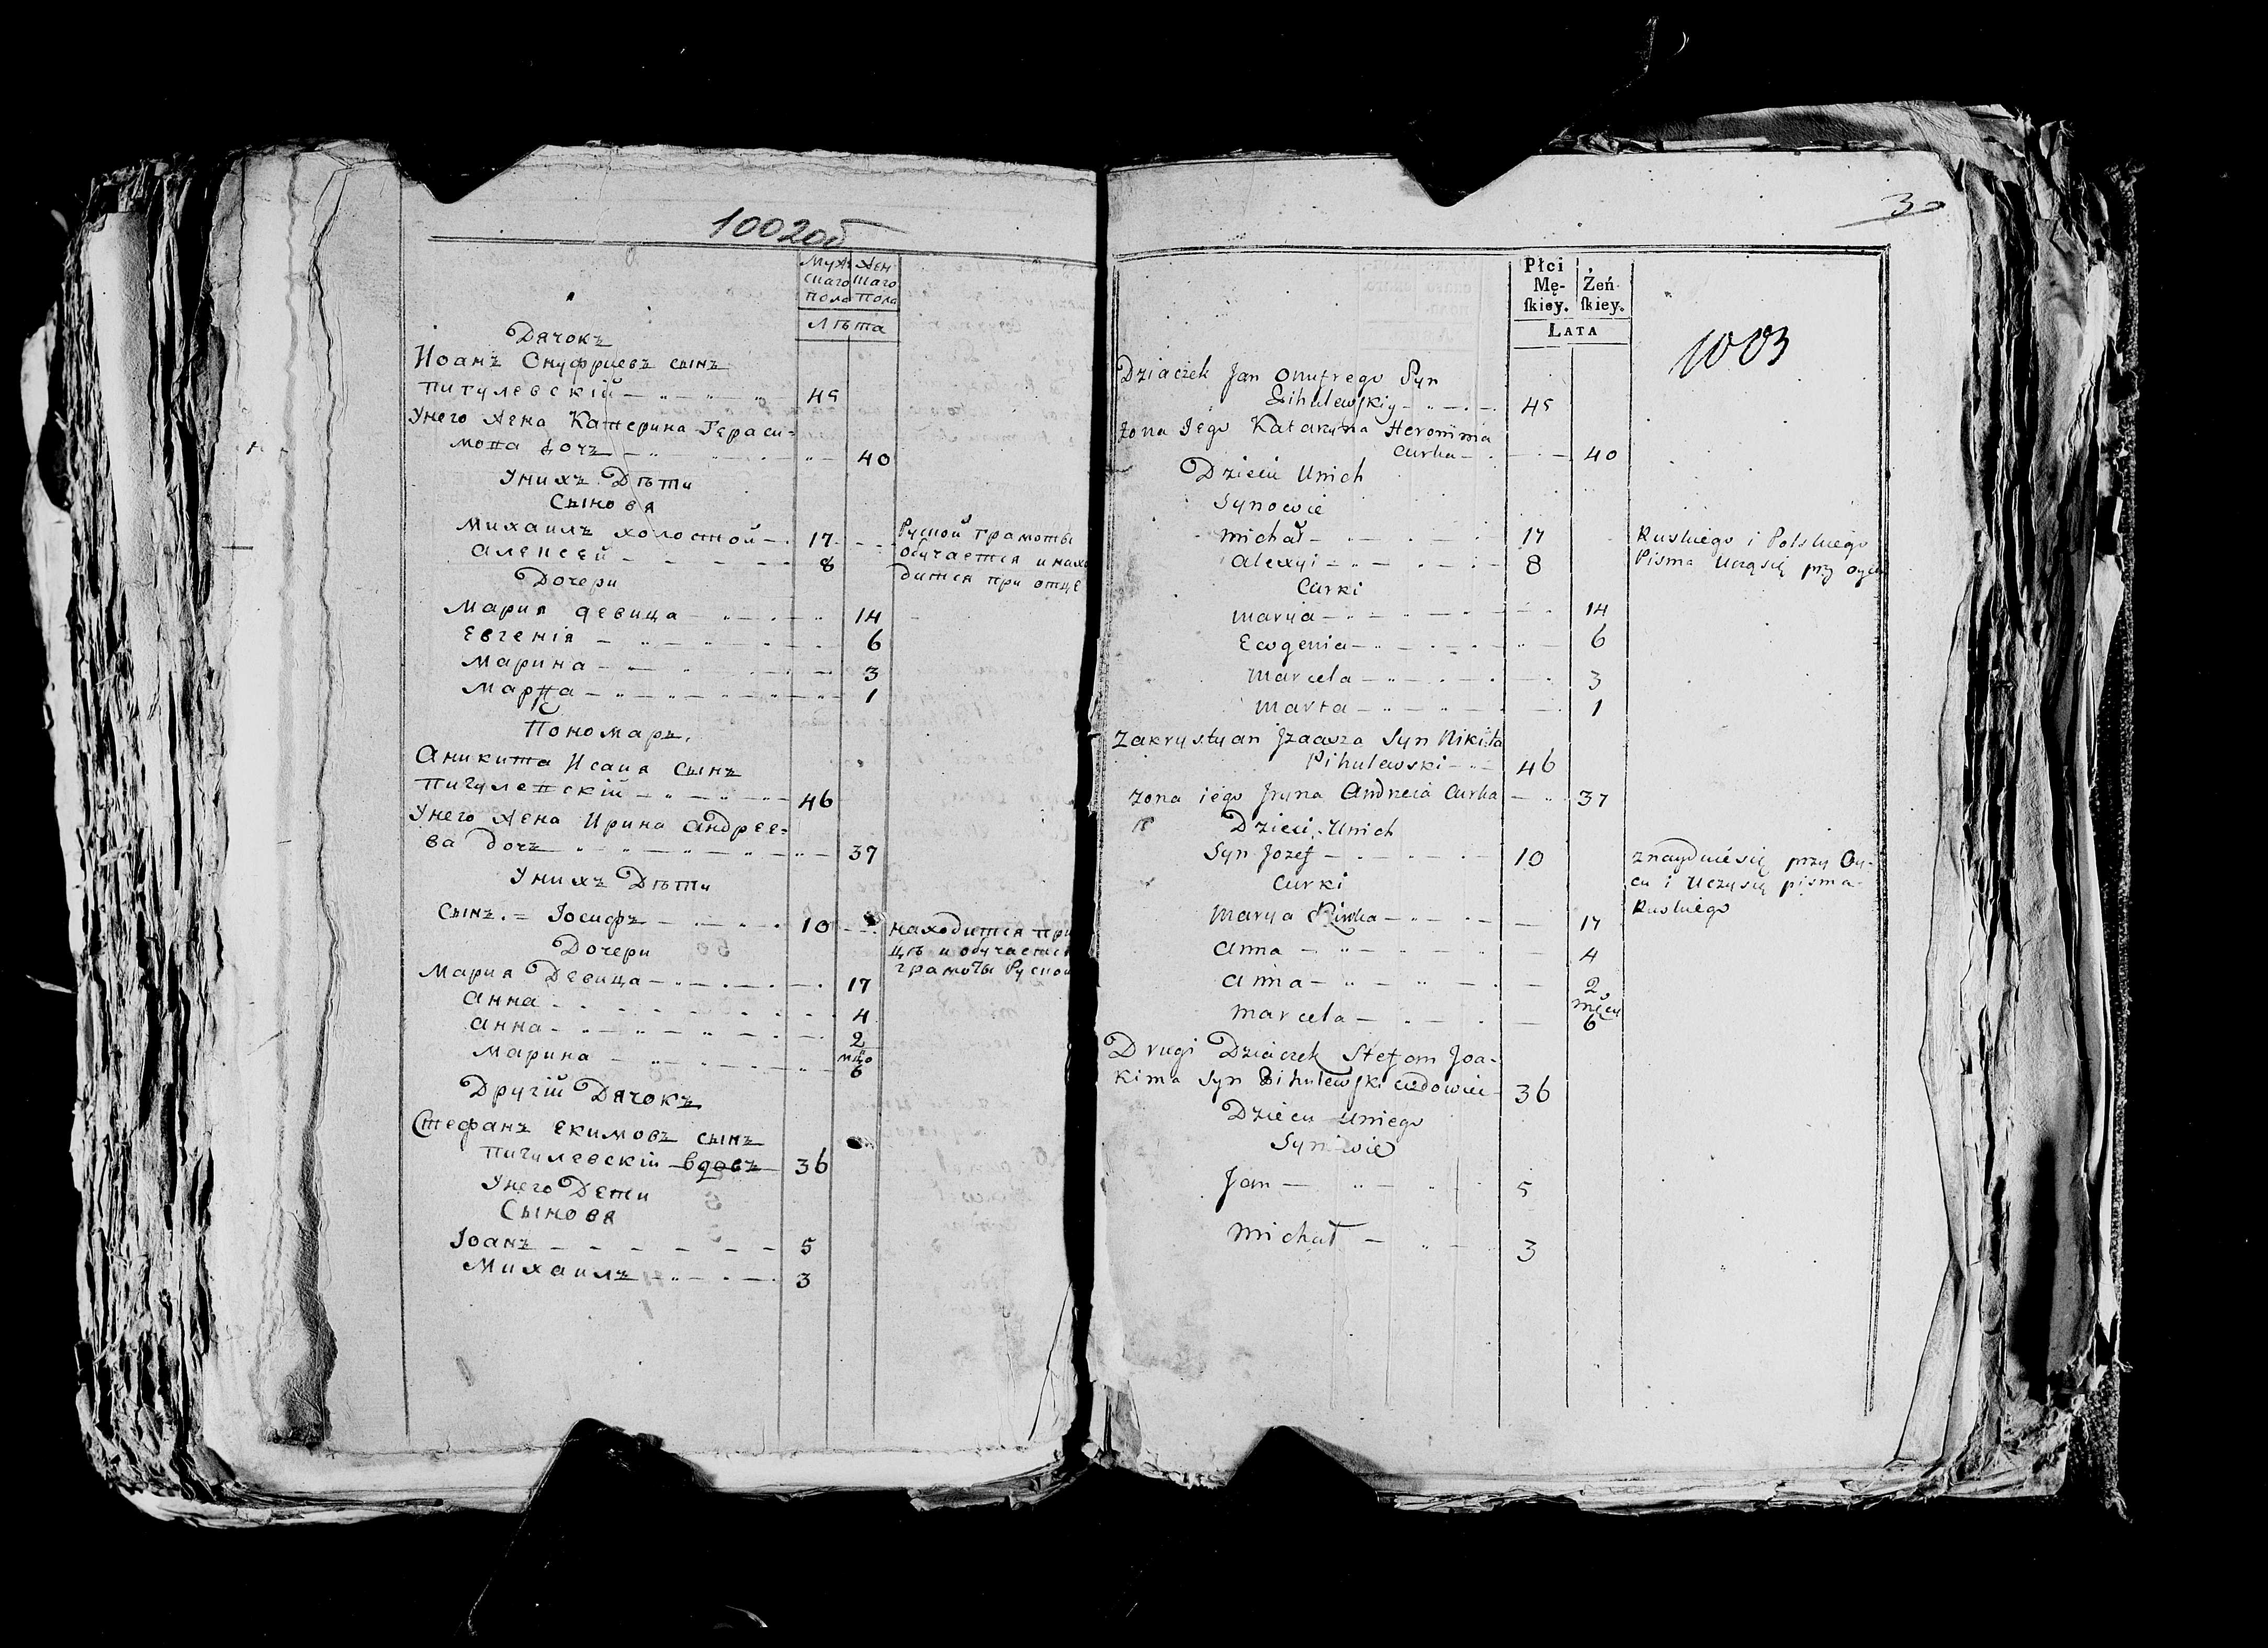 1002об
Муж Жен
скаго скаго
пола пола
Лѣта
Дячокъ
Иоанъ Онуфриевъ сынъ
Пигулевскій 45
Унего жена Катерина Гераси=
мова дочъ 40
Унихъ Дѣти
Сынови
Михаилъ холостой 17 Руской грамоты
Алексей 8 обучается и нахо
Дочери дится при отце
Мария девица 14
Евгенія 6
Марина 3
Марѳа 1
Пономаръ.
Аникита Исаия сынъ
Пигулевскій 46
Унего жена Ирина Андрее=
ва дочъ 37
Унихъ Дѣти
Сынъ = Іосифъ 10 находится при
Дочери цѣ и обучается
грамоты Руской
Мария Девица 17
Анна 4
Анна 2
мцо
Марина 6
Другій Дячокъ
Стефанъ Екимовъ сынъ
Пигулевскій вдовъ 36
Унего Дети
Сынови
Іоанъ 5
Михаилъ 3
3
Płci
Mę- Żeń
skiey. skiey.
LATA
1003
Dziaczek Jan Onufrego Syn
Pihulewskiy 45
żona Jego Katarzyna Heronima
Curka 40
Dzieci Unich
Synowie
Michał 17 Ruskiego i Polskiego
Alexyi 8 Pisma Ucząsię przy oycu
Curki
Marya 14
Ewgenia 6
Marcela 3
Marta 1
Zakrystyan Jzaasza Syn Nikita
Pihulewski 46
żona iego Jryna Andrzeia Curka 37
Dzieci Unich
Syn Jozef 10 znayduiesię przy Oy-
Curki cu i Uczysię pisma
Ruskiego
Marya 17
Anna 4
Anna 2
Marcela 6
Drugi Dziaczek Stefam Joa-
kima Syn Pihulewski wdowiec 36
Dzieci Uniego
Synowie
Jan 5
Michał 3